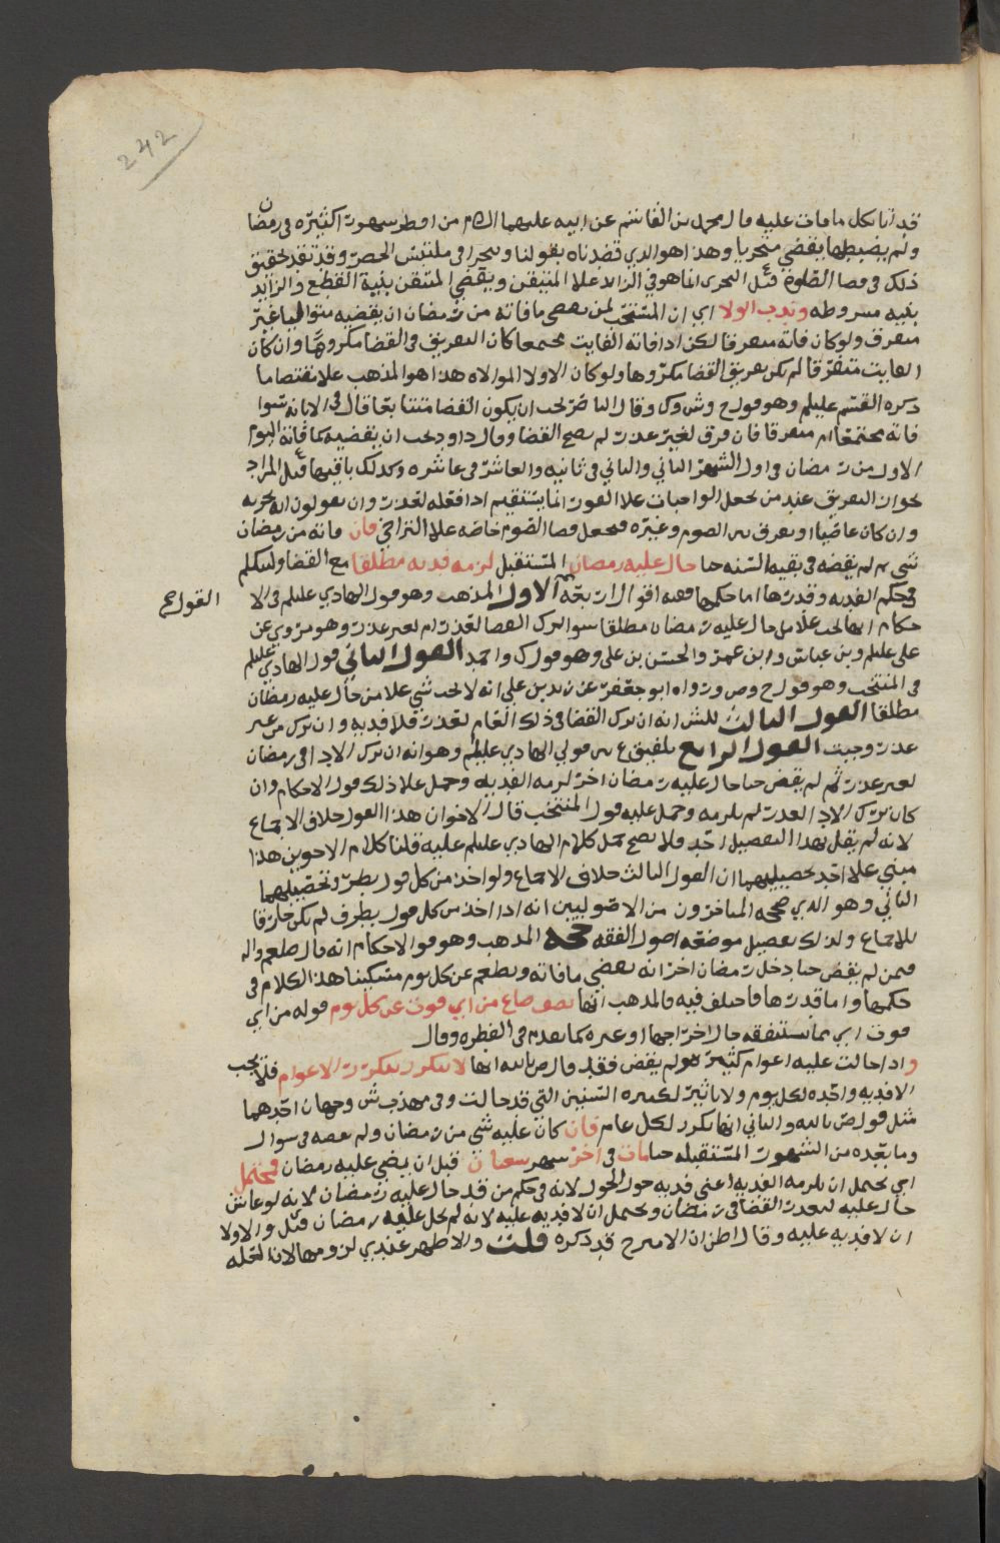 242
قد اتا بكل ما فات عليه قال محمد بن القاسم عن ابيه عليهما السلام من افطر سهوت اكثيره في رمضان
ولم يضبطها يقضي متحريا وهذا هو الذي قصدناه بقولنا ويتحرا في ملتبس الحصر وقد تقدم تحقيق
ذلك في قضا الصلوة قيل التحري انما هو في الزايد علا المتيقن ويقضي المتيقن بنية القطع والزايد
بنيه مشروطه وندب الولا اي ان المستحب لمن يقضي ما فاته من رمضان ان يقضيه متواليا غير
متفرق ولو كان فاته متفرقا لكن اذا فاته الفايت مجتمعا كان التفريق في القضا مكروها وان كان
الفايت متفرقا لم يكن تفريق القضا مكروها ولو كان الاولا الموالاه هذا هو المذهب علا مقتضا ما
ذكره القسم عليلم وهو قول ح وش وك وقال الناصر يجب ان يكون القضا متتابعا قال في الابانه سوا
فاته مجتمعا ام متفرقا فان فرق لغير عذر لم يصح القضا وقال داود يجب ان يقضيه كما فاته اليوم
الاول من رمضان في اول الشهر الثاني والثاني في ثانيه والعاشر في عاشره وكذلك باقيها قيل المراد
بجواز التفريق عند من يجعل الواجبات علا الفور انما يستقيم اذا فعله لعذر وان يقولون انه يجزيه
وان كان عاصيا او يفرق بين الصوم وغيره فيجعل قضا الصوم خاصه علا التراخي فان فاته من رمضان
شي ثم لم يقضه في بقيه السنه حتا حال عليه رمضان المستقبل لزمه فديه مطلقا مع القضا ولنتكلم
في حكم الفديه وقدرها اما حكمها ففيه اقوال اربعه الاول المذهب وهو قول الهادي عليلم في الا
حكام انها تجب علا من حال عليه رمضان مطلقا سوا ترك القضا لعذر ام لغير عذر وهو مروي عن
علي عليلم وبن عباس وابن عمر والحسن بن علي وهو قول ك واحمد القول الثاني قول الهادي عليلم
في المنتخب وهو قول ح وص ورواه ابو جعفر عن زيد بن علي انه لا يجب شي علا من حال عليه رمضان
مطلقا القول الثالث للش انه ان ترك القضا في ذلك العام لعذر فلا فديه وان ترك من غير
عذر وجبت القول الرابع تلفيق ع بين قولي الهادي عليلم وهو انه ان ترك الادا في رمضان
لغير عذر ثم لم يقض حتا حال عليه رمضان اخر لزمه الفديه وحمل علا ذلك قول الاحكام وان
كان ترك الادا لعذر لم يلزمه وحمل عليه قول المنتخب قال الاخوان هذا القول خلاف الاجماع
لانه لم يقل بهذا التفصيل احد فلا يصح حمل كلام الهادي عليلم عليه قلنا كلام الاخوين هذا
مبني علا احد تحصيليهما ان القول الثالث خلاف الاجماع ولو اخذ من كل قول بطرف وتحصيلهما
الثاني وهو الذي صححه المتاخرون من الاصوليين انه اذا اخذ من كل قول بطرف لم يكن خارقا
للاجماع ولذلك تفصيل موضعه اصول الفقه حجه المذهب وهو قول الاحكام انه قال صلعم واله
فيمن لم يقض حتا دخل رمضان اخر انه يقضي ما فاته ويطعم عن كل يوم مسكينا هذا الكلام في
حكمها واما قدرها فاختلف فيه فالمذهب انها نصف صاع من اي قوت عن كل يوم قوله من اي
قوت اي مما يستنفقه حال اخراجها او غيره كما تقدم في الفطره وقال
واذا حالت عليه اعوام كثيره ولم يقض فقد قال ص بالله انها لا تتكرر بتكرر الاعوام فلا يجب
الا فديه واحده لكل يوم ولا تاثير لكثره السنين التي قد حالت وفي مهذب ش وجهان احدهما
مثل قول ص بالله والثاني انها تكرر لكل عام فان كان عليه شي من رمضان ولم يقضه في شوال
وما بعده من الشهور المستقبله حتا مات في اخر شهر شعبان قبل ان يمضي عليه رمضان فمحتمل
اي يحتمل ان يلزمه الفديه اعني فديه حول الحول لانه في حكم من قد حال عليه رمضان لانه لو عاش
حال عليه لتعذر القضا في رمضان ويحتمل ان لا فديه عليه لانه لم يحل عليه رمضان قيل والاولا
ان لا فديه عليه وقال اظن ان الامير ح قد ذكره قلت والاظهر عندي لزومها لانه لعله